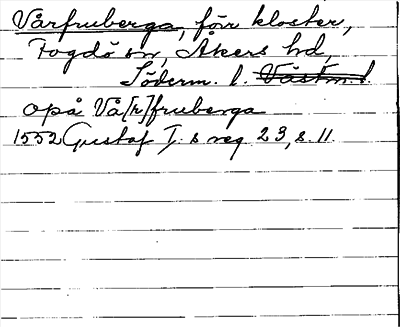 Vårfruberga, förr kloster,
Fogdö sn, Åkers hd,
Söderm. l. Västm. l
opå Vå[r]fruberga
1552 Gustaf I. s reg 23, s. 11.